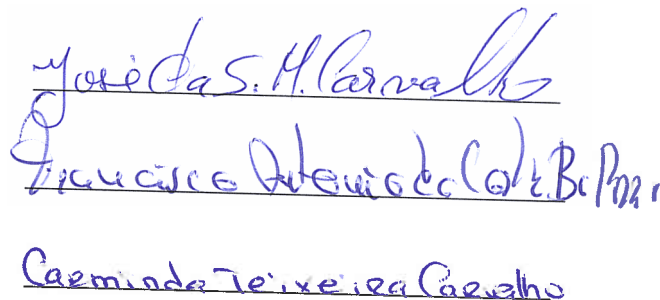 José da S. M. Carvalho
Francisco Antonio da
Carminda Teixeira Carvalho